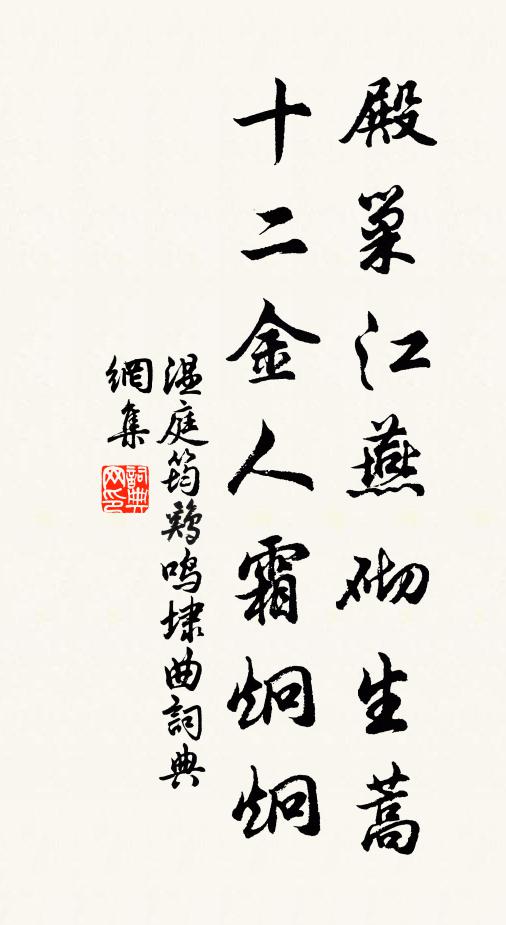 殿巢江燕砌生蒿
十二金人霜炯炯
溫庭筠鷄鳴埭曲詞典
網集
詞典網印